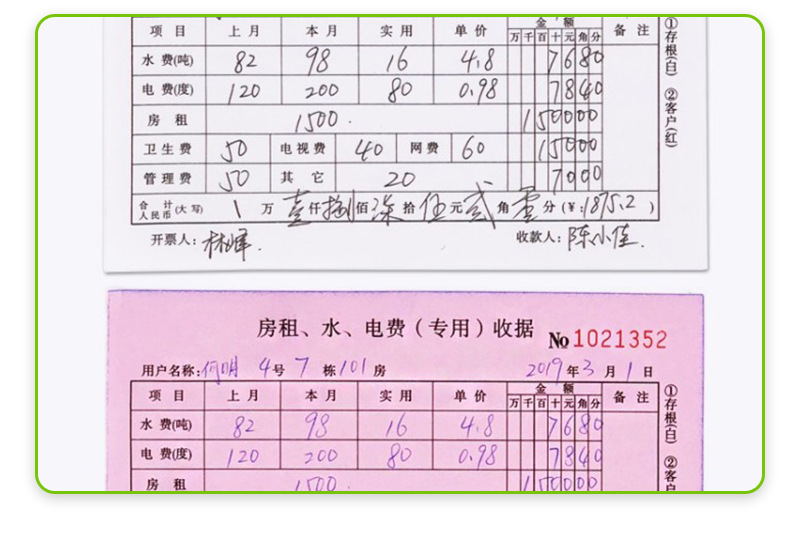 金 额
项 目 上 月 本 月 实 用 单 价 万 千 百 十 元 角 分 备 注
水 费(吨) 82 98 16 4.8 7 6 8 0
电 费(度) 120 200 80 0.98 7 8 4 0
房 租 1500. 1 5 0 0 0 0
卫 生 费 50 电 视 费 40 网 费 60 1 5 0 0 0
管 理 费 50 其 它 20 7 0 0 0
合 计 人民币 (大 写) 万 壹 仟 捌 佰 柒 拾 伍 元 贰 角 零 分 (¥:1875.2 )
开票人: 林峰. 收款人: 陈小佳.
①存根(白) ②客户(红)
房租、水、电费(专用)收据 No 1021352
用户名称: 何明 4 号 7 栋 101 房 2019 年 3 月 1 日
金 额
项 目 上 月 本 月 实 用 单 价 万 千 百 十 元 角 分 备 注
水 费(吨) 82 98 16 4.8 7 6 8 0
电 费(度) 120 200 80 0.98 7 8 4 0
房 租 1500. 1 5 0 0 0 0
①存根(白) ②客户